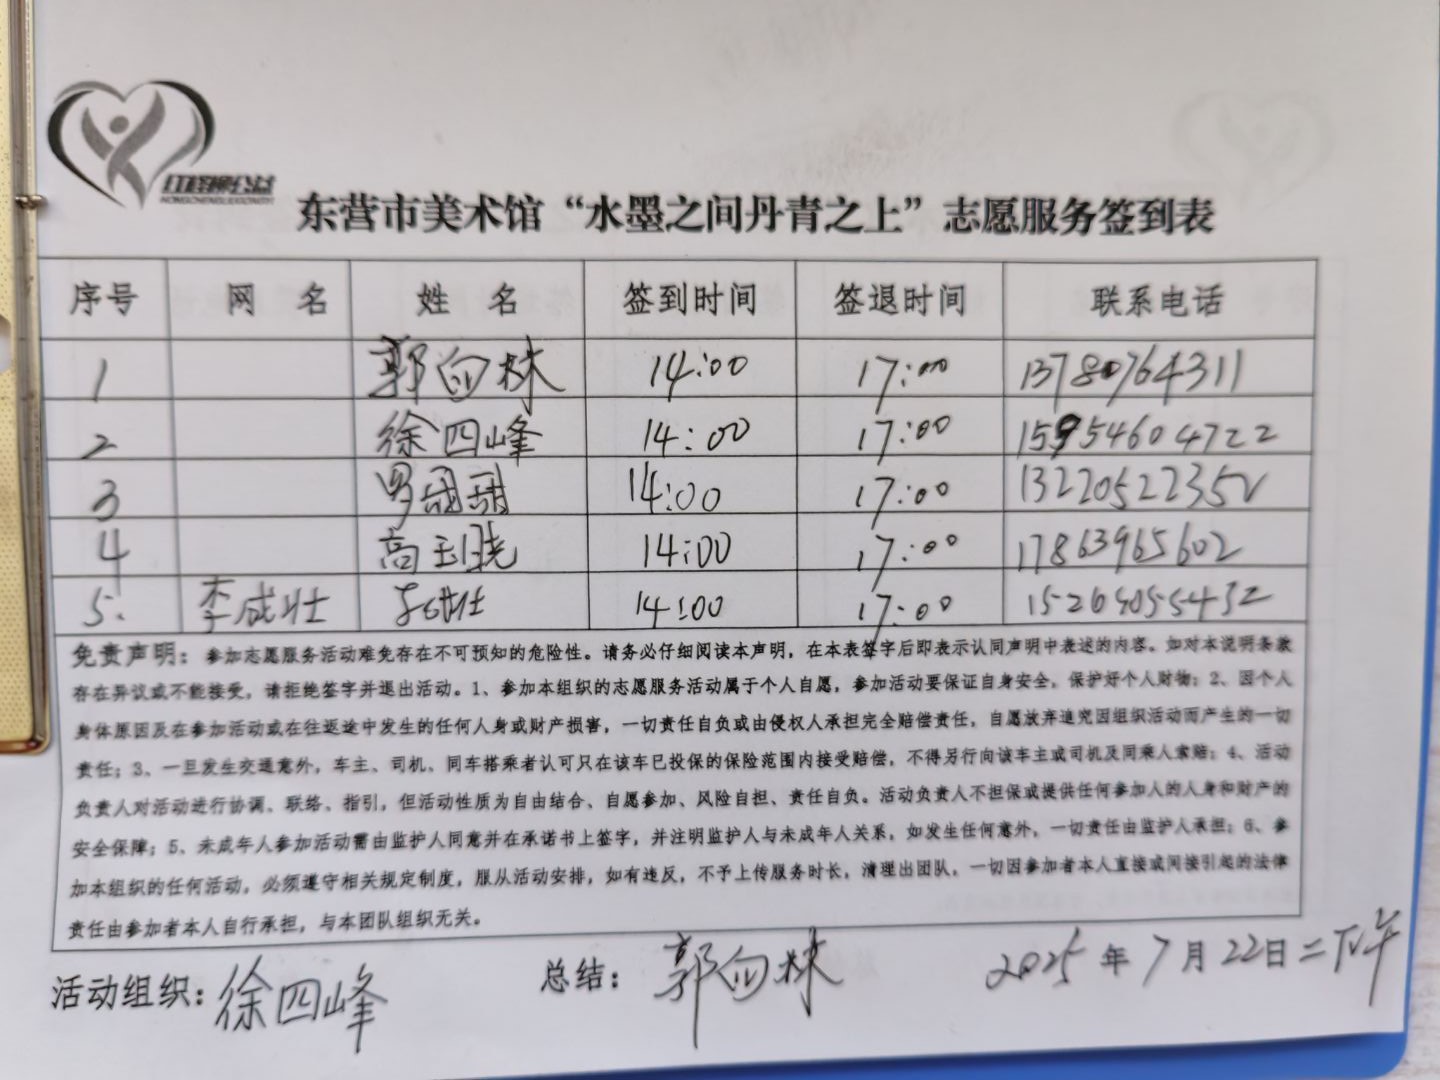 红橙柳公益
东营市美术馆“水墨之间丹青之上”志愿服务签到表
序号 网 名 姓 名 签到时间 签退时间 联系电话
1 郭向林 14:00 17:00 13780764311
2 徐四峰 14:00 17:00 15954604722
3 14:00 17:00 13220522352
4 高玉晓 14:00 17:00 17863965602
5. 李成壮 李成壮 14:00 17:00
免责声明：参加志愿服务活动难免存在不可预知的危险性。请务必仔细阅读本声明，在本表签字后即表示认同声明中表述的内容。如对本说明条款
存在异议或不能接受，请拒绝签字并退出活动。1、参加本组织的志愿服务活动属于个人自愿，参加活动要保证自身安全，保护好个人财物；2、因个人
身体原因及在参加活动或在往返途中发生的任何人身或财产损害，一切责任自负或由侵权人承担完全赔偿责任，自愿放弃追究因组织活动而产生的一切
责任；3、一旦发生交通意外，车主、司机、同车搭乘者认可只在该车已投保的保险范围内接受赔偿，不得另行向该车主或司机及同乘人索赔；4、活动
负责人对活动进行协调、联络、指引，但活动性质为自由结合、自愿参加、风险自担、责任自负。活动负责人不担保或提供任何参加人的人身和财产的
安全保障；5、未成年人参加活动需由监护人同意并在承诺书上签字，并注明监护人与未成年人关系，如发生任何意外，一切责任由监护人承担；6、参
加本组织的任何活动，必须遵守相关规定制度，服从活动安排，如有违反，不予上传服务时长，清理出团队，一切因参加者本人直接或间接引起的法律
责任由参加者本人自行承担，与本团队组织无关。
活动组织：徐四峰 总结：郭向林 2025年7月22日二下午